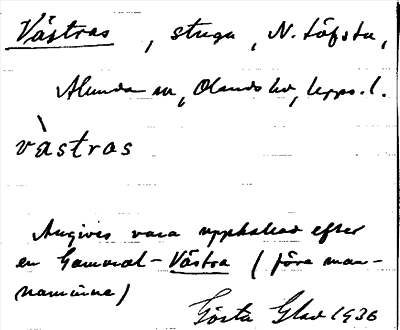 Västras, stuga, N. Löfsta,
Alunda sn, Olands hd, Upps. l.
vàstras
Angives vara uppkallad efter
en Gammal-Västra (före man-
naminne)
Gösta Glad 1936